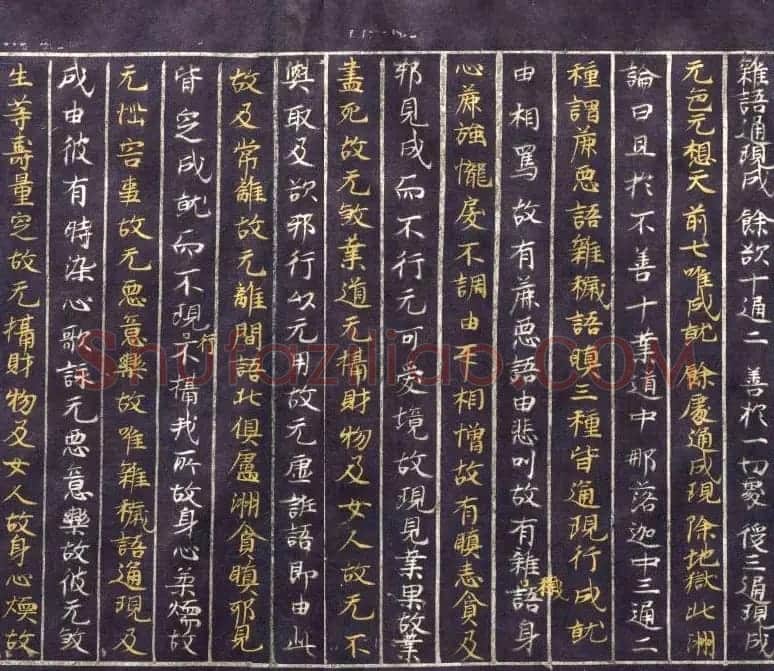 雜語通現成 餘欲十通二 善於一切處 後三通現成
无色无想天 前七唯成就 餘處通成現 除地獄北洲
論曰且於不善十業道中 那落迦中三通二
種謂麁悪語雜穢語瞋三種皆通現行成就
由相罵故有麁悪語由悲叫故有雜穢語身
心麁強㦬戾不調由互相憎故有瞋恚貪及
邪見成而不行无可愛境故現見業果故業
盡死故无煞業道无攝財物及女人故无不
與取及欲邪行以无用故无虛誑語即由此
故及常離故无離間語北俱盧洲貪瞋邪見
皆定成就而不現行不攝我所故身心柔煗故
无惱害事故无悪意樂故唯雜穢語通現及
成由彼有時染心歌詠无悪意樂故彼无煞
生等壽量定故无攝財物及女人故身心煗故
Shufaziliao.COM